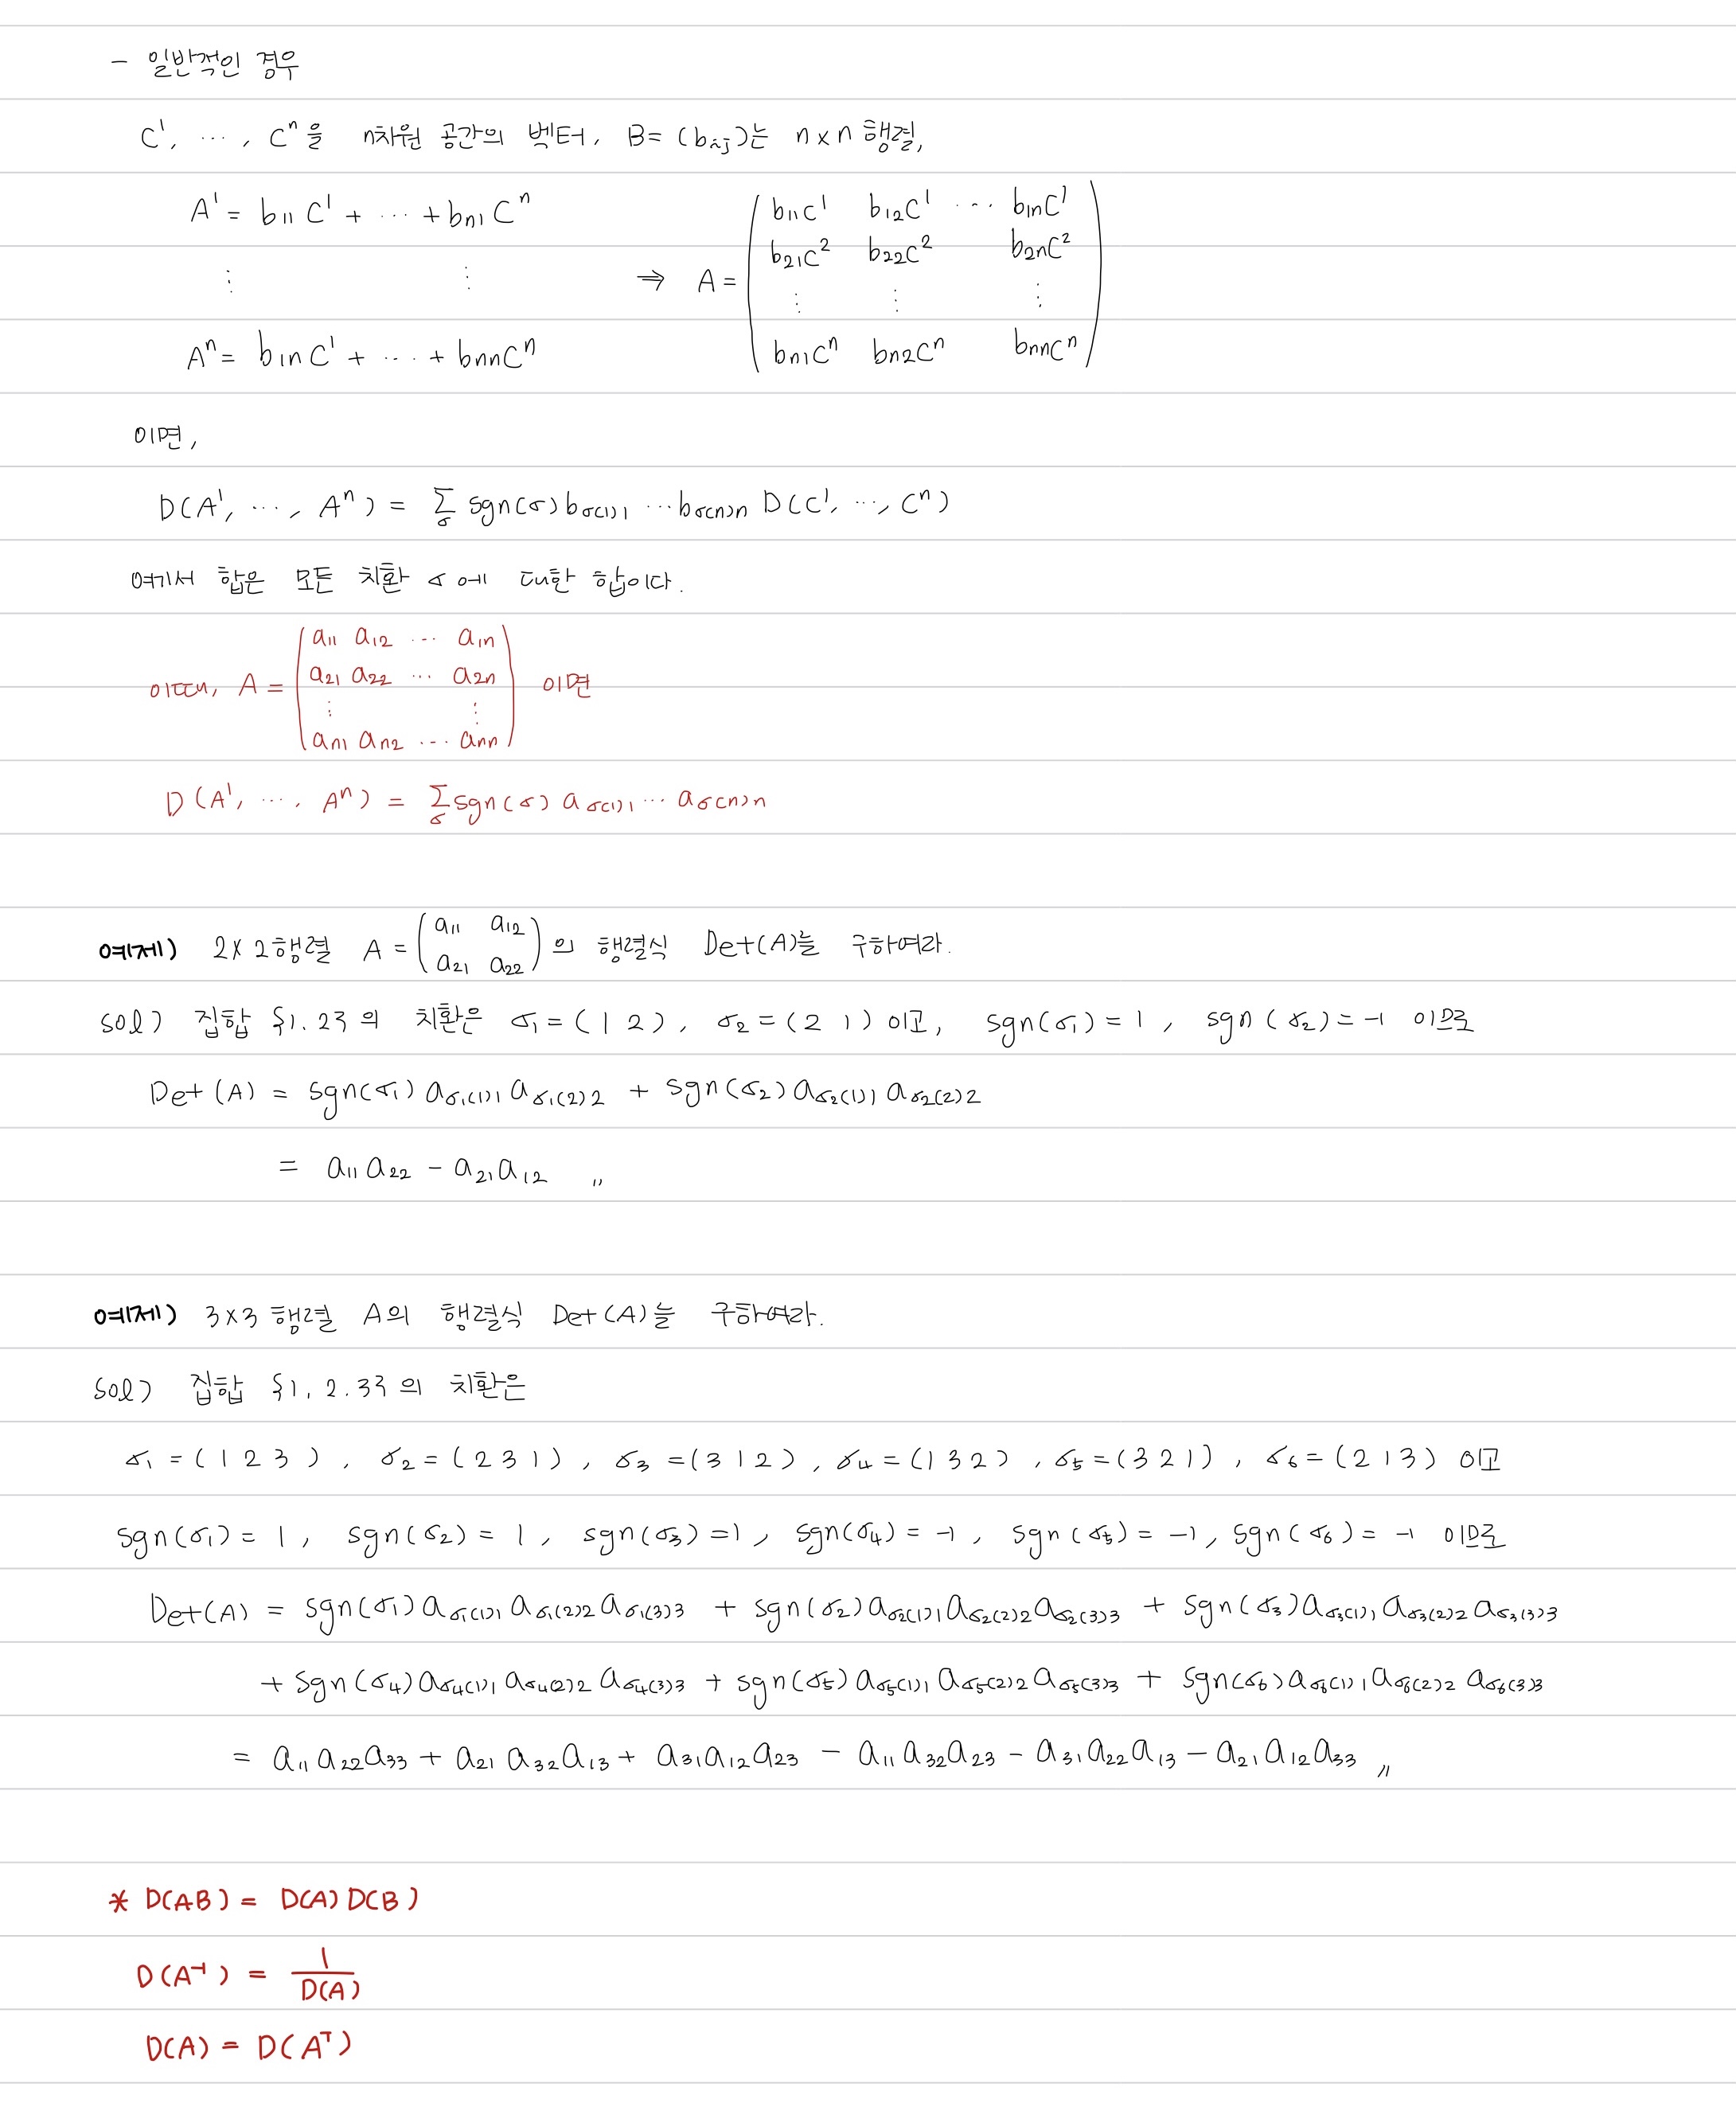 - 일반적인 경우
C¹, ⋯, Cⁿ을 n차원 공간의 벡터, B = (bᵢⱼ)는 n×n 행렬,
A¹ = b₁₁C¹ + ⋯ + bₙ₁Cⁿ
⋮ ⋮
Aⁿ = b₁ₙC¹ + ⋯ + bₙₙCⁿ
⇒ A = ( b₁₁C¹ b₁₂C¹ ⋯ b₁ₙC¹
b₂₁C² b₂₂C² b₂ₙC²
⋮ ⋮ ⋮
bₙ₁Cⁿ bₙ₂Cⁿ bₙₙCⁿ )
이면,
D(A¹, ⋯, Aⁿ) = Σ_σ sgn(σ) b_{σ(1)1} ⋯ b_{σ(n)n} D(C¹, ⋯, Cⁿ)
여기서 합은 모든 치환 σ에 대한 합이다.
이때, A = ( a₁₁ a₁₂ ⋯ a₁ₙ
a₂₁ a₂₂ ⋯ a₂ₙ
⋮ ⋮
aₙ₁ aₙ₂ ⋯ aₙₙ ) 이면
D(A¹, ⋯, Aⁿ) = Σ_σ sgn(σ) a_{σ(1)1} ⋯ a_{σ(n)n}
예제) 2×2행렬 A = ( a₁₁ a₁₂
a₂₁ a₂₂ ) 의 행렬식 Det(A)를 구하여라.
sol) 집합 {1, 2}의 치환은 σ₁ = (1 2), σ₂ = (2 1) 이고, sgn(σ₁) = 1, sgn(σ₂) = -1 이므로
Det(A) = sgn(σ₁) a_{σ₁(1)1} a_{σ₁(2)2} + sgn(σ₂) a_{σ₂(1)1} a_{σ₂(2)2}
= a₁₁a₂₂ - a₂₁a₁₂ 〃
예제) 3×3 행렬 A의 행렬식 Det(A)를 구하여라.
sol) 집합 {1, 2, 3}의 치환은
σ₁ = (1 2 3), σ₂ = (2 3 1), σ₃ = (3 1 2), σ₄ = (1 3 2), σ₅ = (3 2 1), σ₆ = (2 1 3) 이고
sgn(σ₁) = 1, sgn(σ₂) = 1, sgn(σ₃) = 1, sgn(σ₄) = -1, sgn(σ₅) = -1, sgn(σ₆) = -1 이므로
Det(A) = sgn(σ₁) a_{σ₁(1)1} a_{σ₁(2)2} a_{σ₁(3)3} + sgn(σ₂) a_{σ₂(1)1} a_{σ₂(2)2} a_{σ₂(3)3} + sgn(σ₃) a_{σ₃(1)1} a_{σ₃(2)2} a_{σ₃(3)3}
+ sgn(σ₄) a_{σ₄(1)1} a_{σ₄(2)2} a_{σ₄(3)3} + sgn(σ₅) a_{σ₅(1)1} a_{σ₅(2)2} a_{σ₅(3)3} + sgn(σ₆) a_{σ₆(1)1} a_{σ₆(2)2} a_{σ₆(3)3}
= a₁₁a₂₂a₃₃ + a₂₁a₃₂a₁₃ + a₃₁a₁₂a₂₃ - a₁₁a₃₂a₂₃ - a₃₁a₂₂a₁₃ - a₂₁a₁₂a₃₃ 〃
* D(AB) = D(A)D(B)
D(A⁻¹) = 1/D(A)
D(A) = D(Aᵀ)